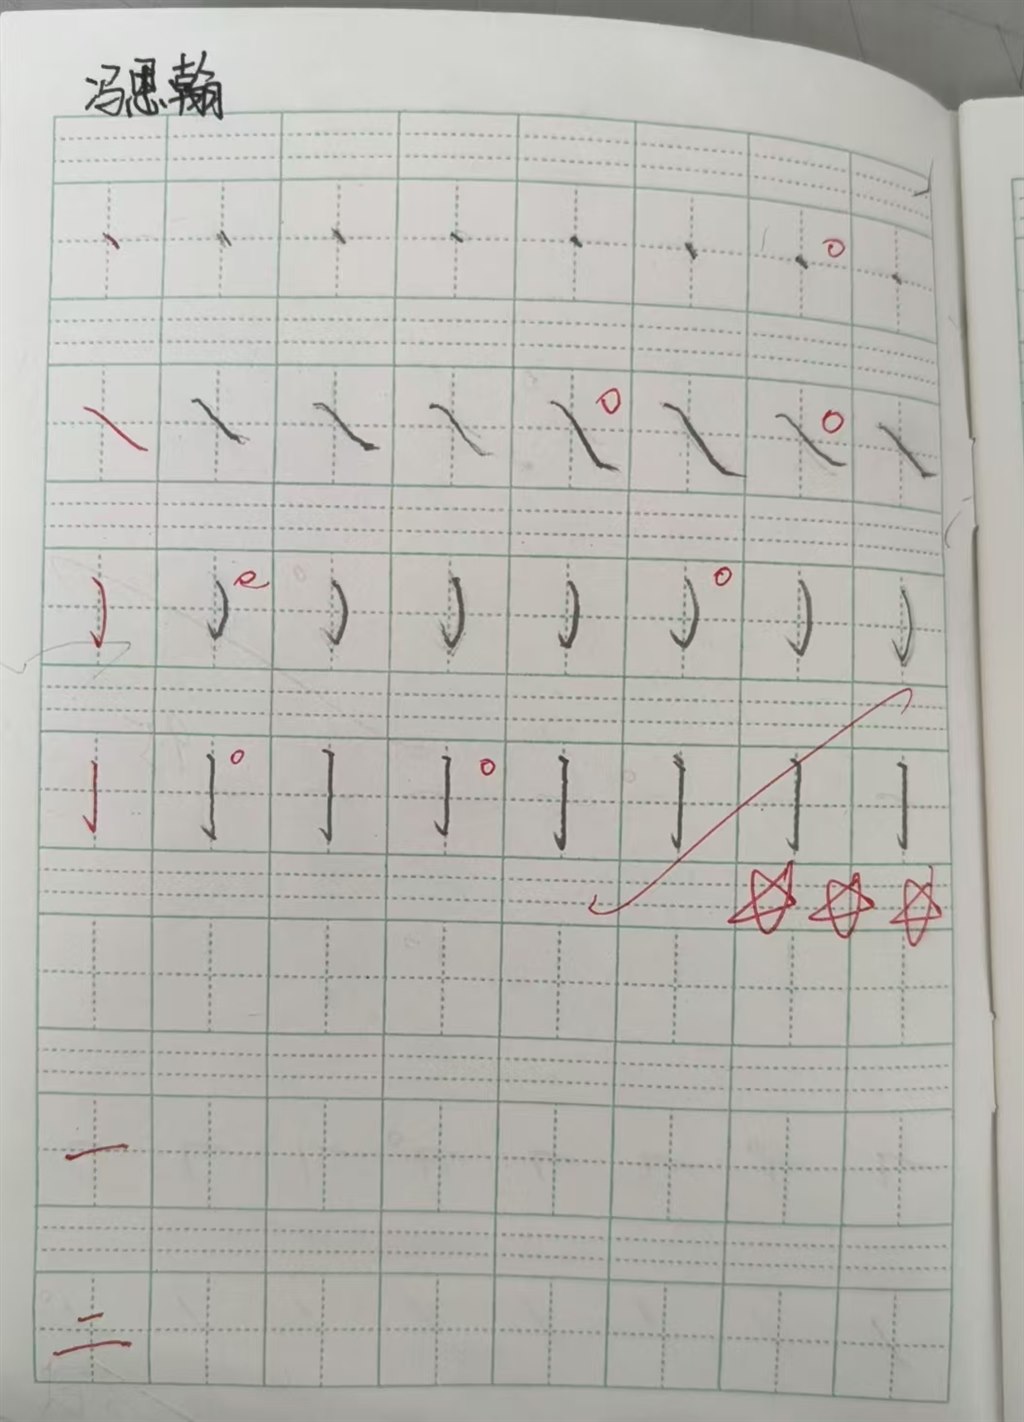 冯思翰
一
二